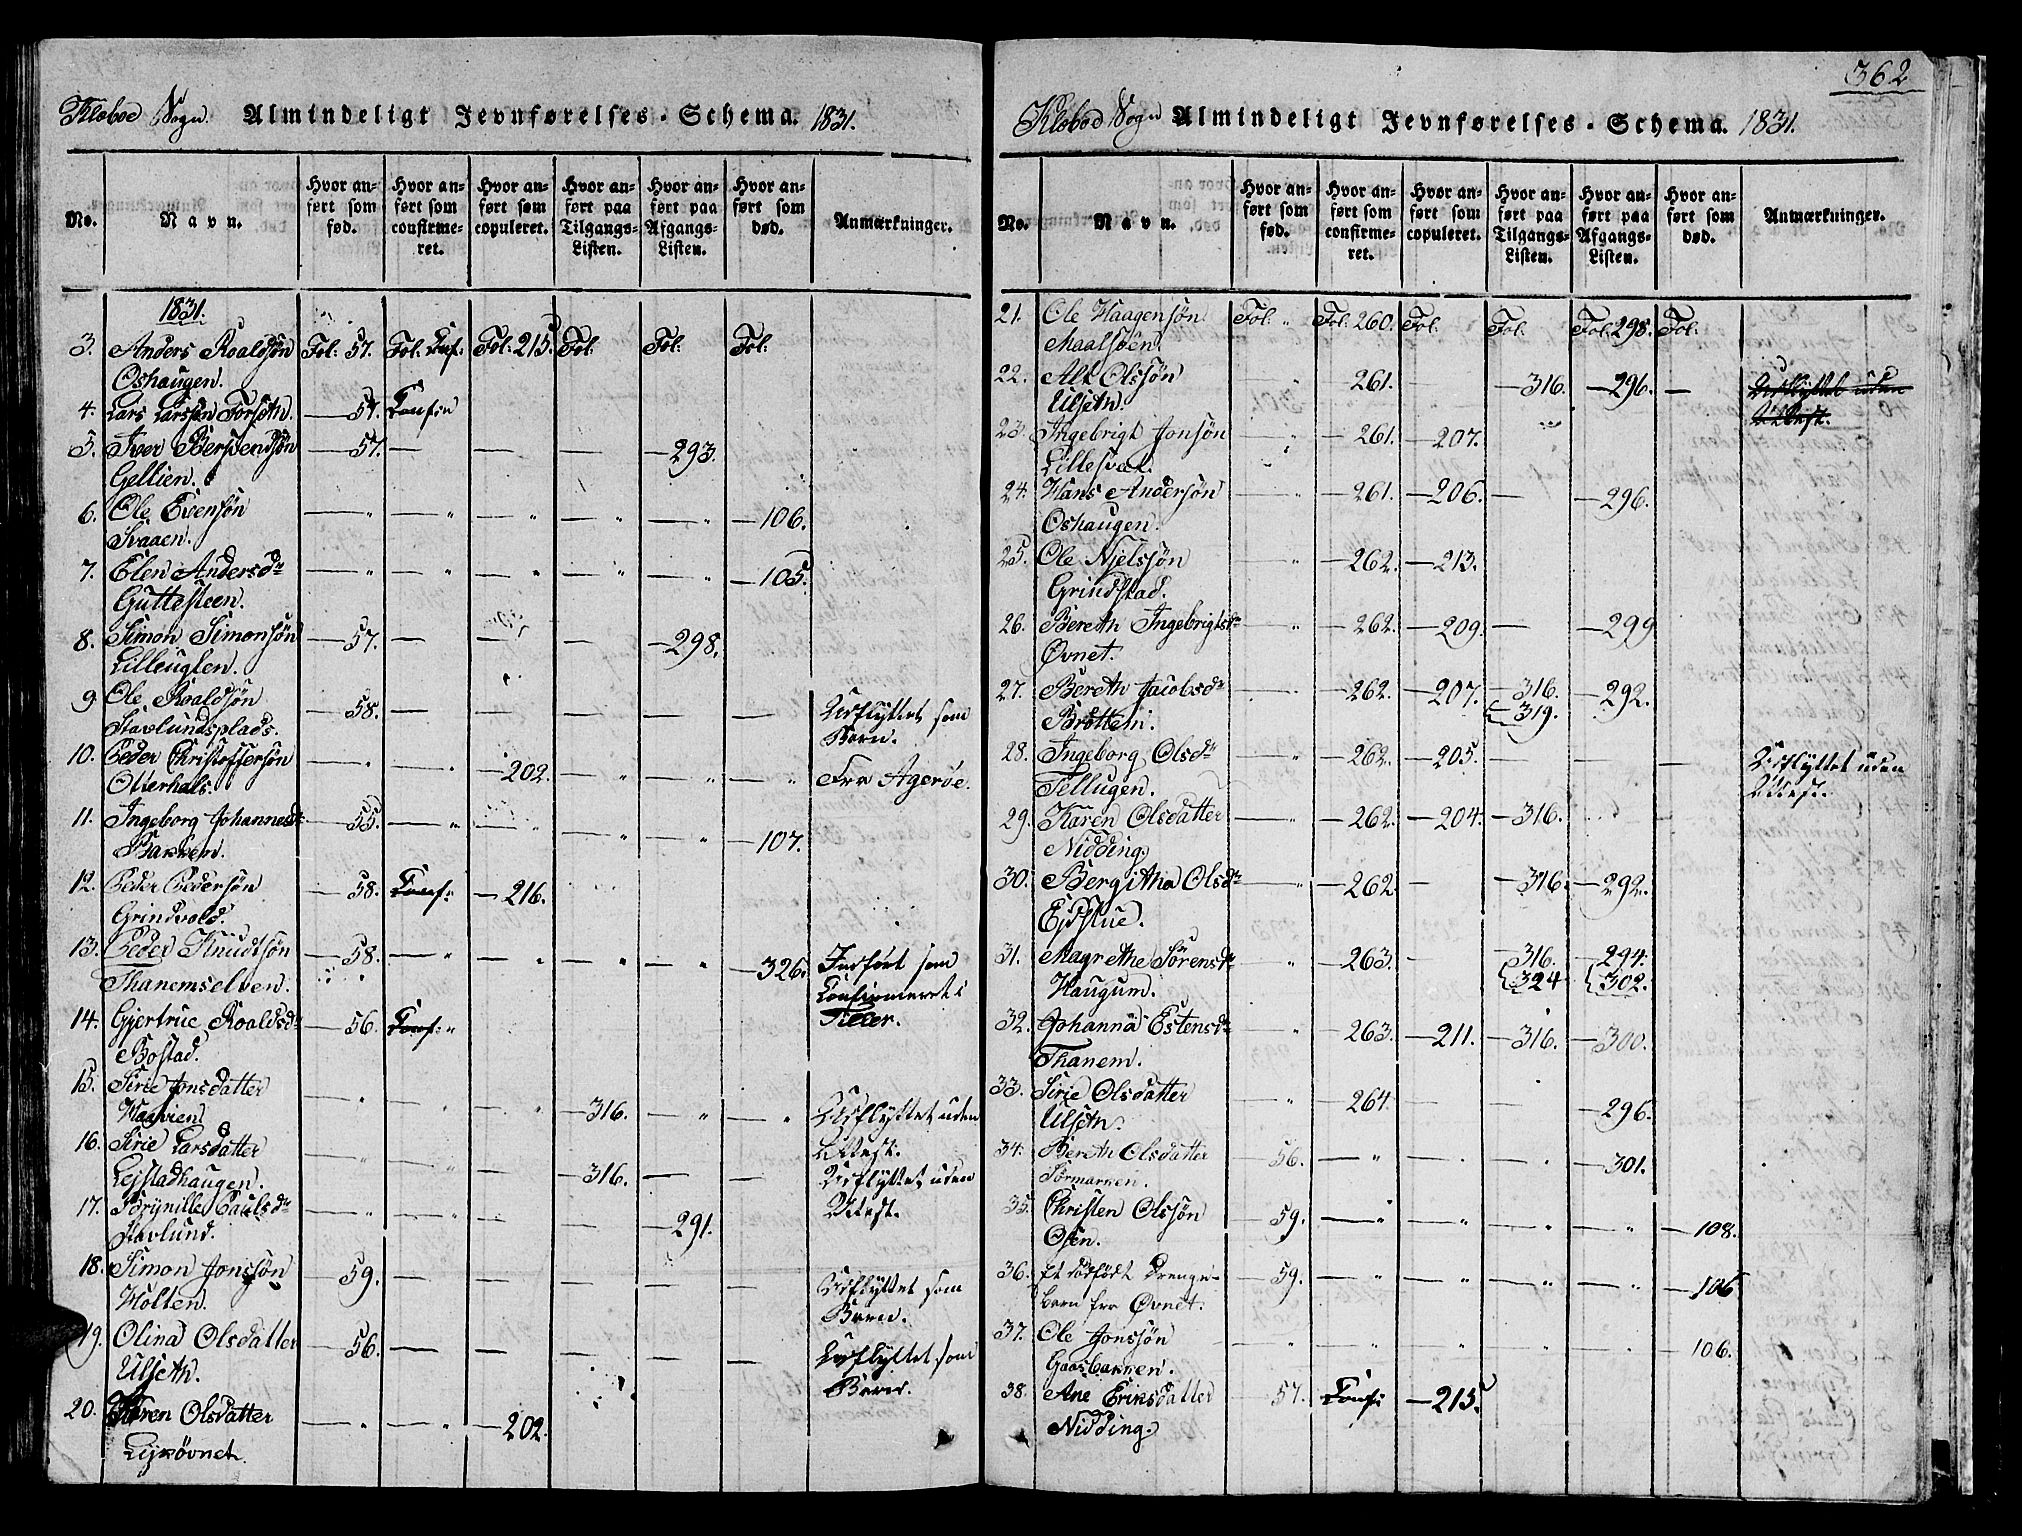 362
Klæboe Sogn. Almindeligt Jevnførelses-Schema. 1831.
No. Navn. Hvor anført som fød. Hvor anført som confirmeret. Hvor anført som copuleret. Hvor anført paa Tilgangs-Listen. Hvor anført paa Afgangs-Listen. Hvor anført som død. Anmærkninger.
1831.
3. Anders Roaldsøn Fol: 57. Fol. Conf: Fol: 215. Fol. Fol: Fol:
Oshaugen.
4. Lars Larssøn Forseth. — 57. Conf:
5. Iver Bersvendsøn — 57. — — — — 293.
Gellien.
6. Ole Evensøn — " — " — " — " — " — 106.
Svaaen.
7. Elen Andersdr — " — " — " — " — " — 105.
Guttesteen.
8. Simon Simonsøn — 57. — — — — 298.
Lilleuglen.
9. Ole Roaldsøn — 58. — — — — — Udflyttet som
Stavlundsplads. Barn.
10. Peder Christoffersøn — " — " — 202. — " — " — " Fra Agerøe.
Otterhals.
11. Ingeborg Johannesdr — 55. — " — " — " — " — 107.
Bakken.
12. Peder Pedersøn — 58. Conf: — 216.
Grindvold.
13. Peder Knudtsøn — 58. — " — " — " — " — 326. Indført som
Thanemselven. Confirmeret i
14. Gjertrue Roaldsdr — 56. Conf: " Tiller.
Bostad.
15. Sirie Jonsdatter — " — " — " — 316. — " — " Udflyttet uden
Haavien. Attest.
16. Sirie Larsdatter — " — " — — 316. — — Udflyttet uden
Lejstadhaugen. Attest.
17. Brynille Paulsdr — " — " — — — 291.
Stavlund.
18. Simon Jonssøn — 59. — — — — — Udflyttet som
Holten. Barn.
19. Olina Olsdatter — 56. — — — — — Udflyttet som
Ulseth. Barn.
20. Karen Olsdatter — " — " — 202.
Lysøvnet.
Klæboe Sogn Almindeligt Jevnførelses-Schema. 1831.
No. Navn. Hvor anført som fød. Hvor anført som confirmeret. Hvor anført som copuleret. Hvor anført paa Tilgangs-Listen. Hvor anført paa Afgangs-Listen. Hvor anført som død. Anmærkninger.
21. Ole Haagensøn Fol: " Fol: 260. Fol. Fol: Fol: 298. Fol:
Maalsøen.
22. Alt Olssøn — " — 261. — — 316. — 296. — Udflyttet uden
Ulseth. Attest.
23. Ingebrigt Jonsøn — " — 261. — 207.
Lillesvæ.
24. Hans Andersøn — " — 261. — 206. — — 296.
Oshaugen.
25. Ole Nielssøn " — 262. — 213.
Grindstad.
26. Bereth Ingebrigtsdr " — 262. — 209. — — 299
Øvnet.
27. Bereth Jacobsdr — " — 262. — 207. — 316. — 292.
Brøttem. 319.
28. Ingeborg Olsdr — " — 262. — 205. — — — Udflyttet uden
Tellugen. Attest.
29. Karen Olsdatter — " — 262. — 204. — 316.
Nidding.
30. Bergitha Olsdr — " — 262. — — 316. — 292.
Ejdstue.
31. Magrethe Sørensdr " — 263. — — 316. — 294.
Haugum. 324 302.
32. Johanna Estensdr " — 263. — 211. — 316. — 300.
Thanem.
33. Sirie Olsdatter — " — 264. — — — 296.
Ulseth.
34. Bereth Olsdatter — 56. — " — " — " — 301.
Sørmarken.
35. Christen Olssøn — 59. — " — " — " — " — 108.
Osen.
36. Et dødfødt Drenge- — 59. — " — " — " — " — 106
barn fra Øvnet.
37. Ole Jonssøn — " — " — " — " — " — 106.
Gaasbakken.
38. Ane Eriksdatter — 57. Conf: — 215.
Nidding.